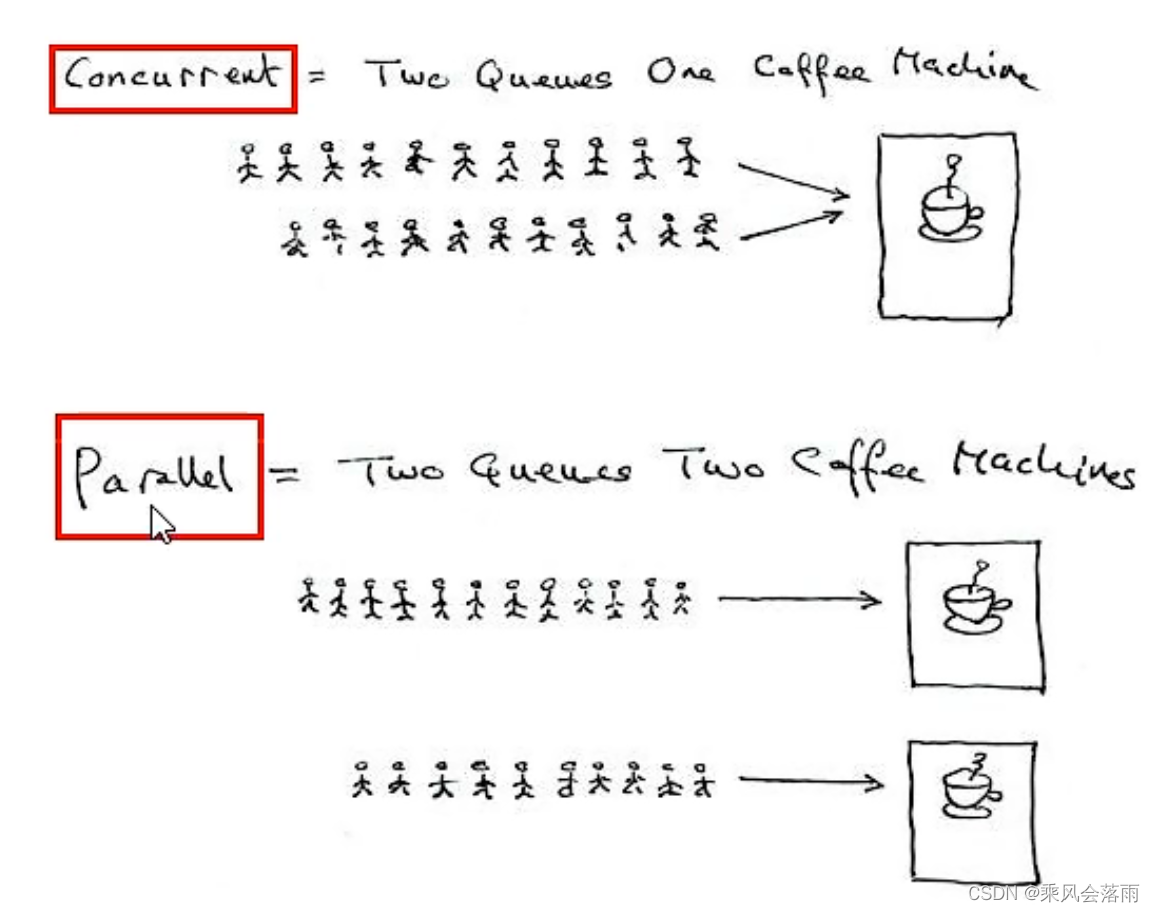 Concurrent = Two Queues One Coffee Machine
Parallel = Two Queues Two Coffee Machines
CSDN @乘风会落雨